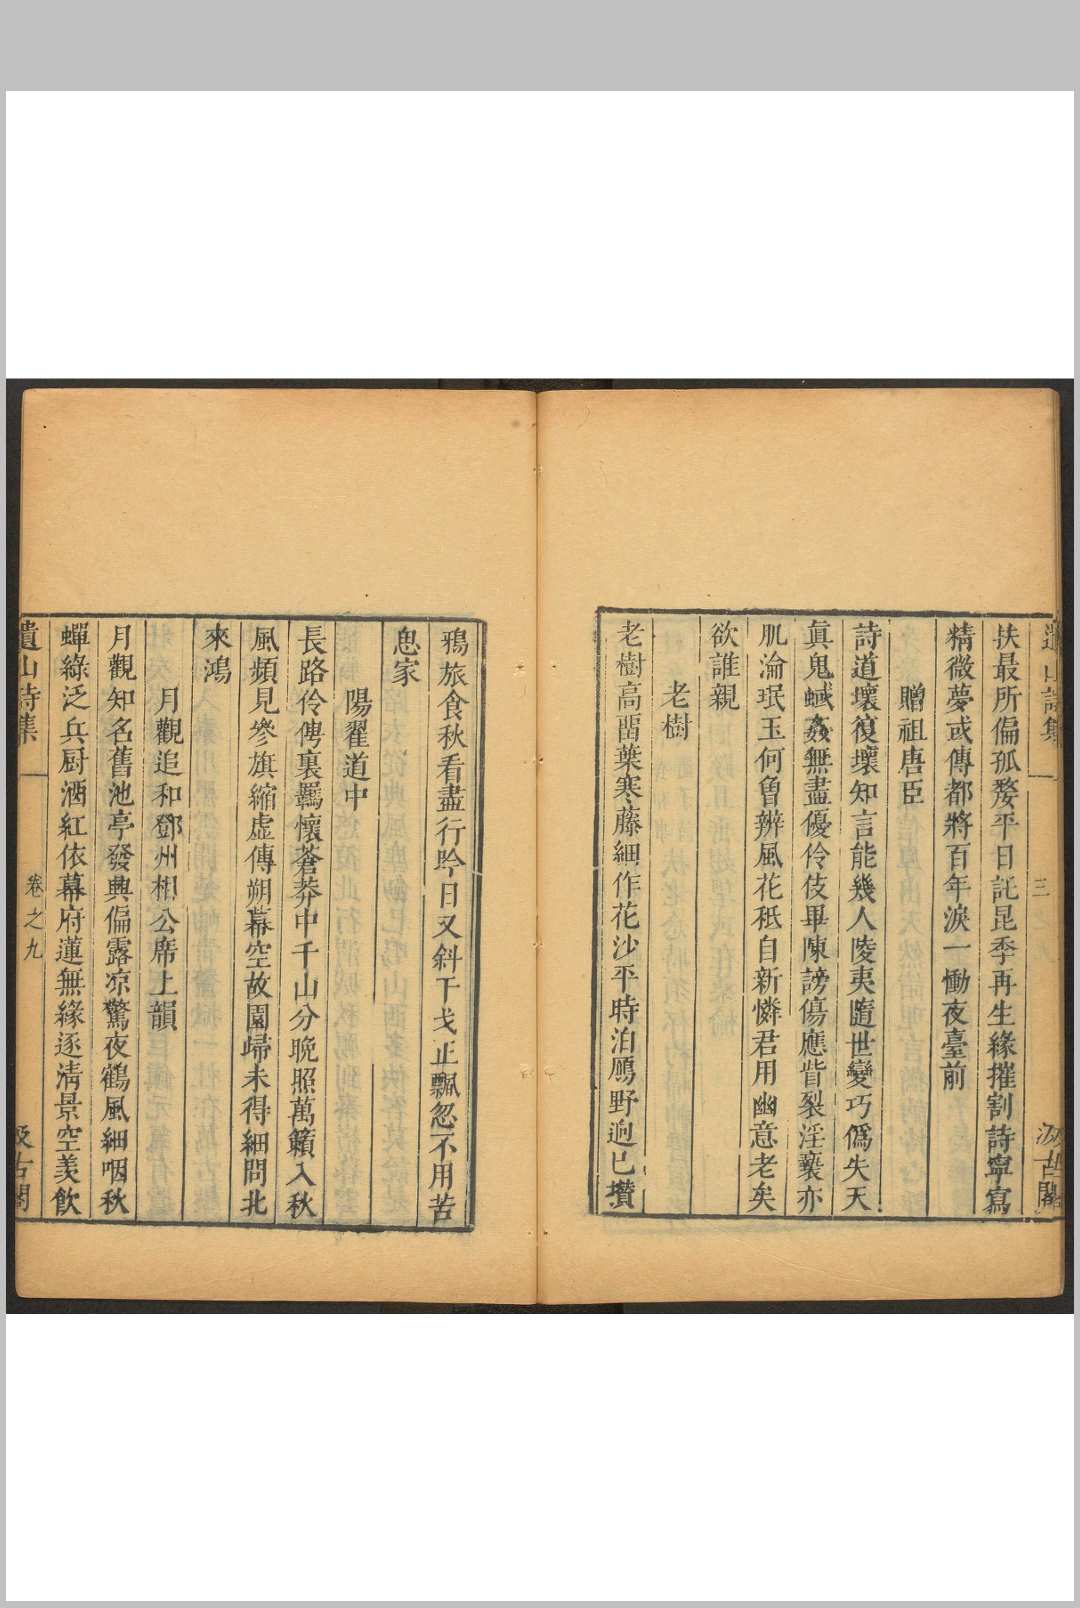 遺山詩集
三
汲古閣
扶最所偏孤嫠平日託昆季再生緣摧割詩寧寫
精微夢或傳都將百年淚一慟夜臺前
贈祖唐臣
詩道壞復壞知言能幾人陵夷隨世變巧僞失天
眞鬼蜮姦無盡優伶伎畢陳謗傷應眥裂淫䙝亦
肌淪珉玉何曾辨風花秪自新憐君用幽意老矣
欲誰親
老樹
老樹高留葉寒藤細作花沙平時泊鴈野逈已攢
鴉旅食秋看盡行吟日又斜干戈正飄忽不用苦
思家
陽翟道中
長路伶俜裏羈懷蒼莽中千山分晩照萬籟入秋
風頻見參旗縮虛傳朔幕空故園歸未得細問北
來鴻
月觀追和鄧州相公席上韻
月觀知名舊池亭發興偏露凉驚夜鶴風細咽秋
蟬綠泛兵厨酒紅依幕府蓮無緣逐清景空羡飲
遺山詩集
卷之九
汲古閣